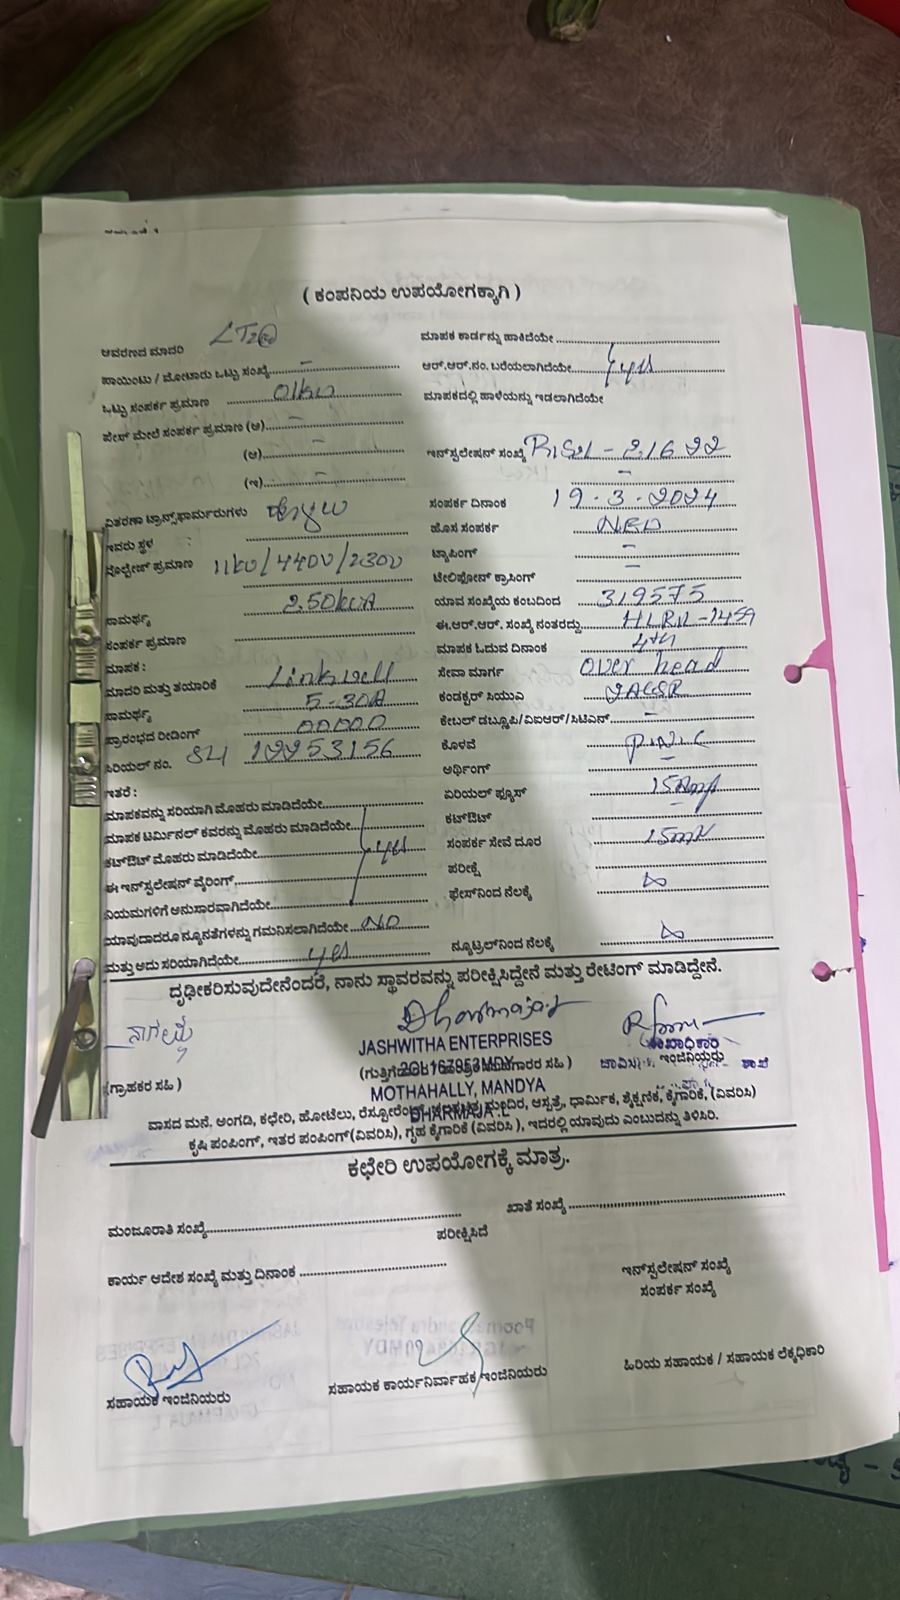 ( ಕಂಪನಿಯ ಉಪಯೋಗಕ್ಕಾಗಿ )
ಆವರಣದ ಮಾದರಿ LT2
ಪಾಯಿಂಟು / ಮೋಟಾರು ಒಟ್ಟು ಸಂಖ್ಯೆ -
ಒಟ್ಟು ಸಂಪರ್ಕ ಪ್ರಮಾಣ 01kw
ಫೇಸ್ ಮೇಲೆ ಸಂಪರ್ಕ ಪ್ರಮಾಣ (ಅ) -
(ಆ) -
(ಇ) -
ವಿತರಣಾ ಟ್ರಾನ್ಸ್‌ಫಾರ್ಮರುಗಳು
ಇವರು ಸ್ಥಳ
ವೊಲ್ಟೇಜ್ ಪ್ರಮಾಣ 11kv/440V/230V
ಸಾಮರ್ಥ್ಯ 250kVA
ಸಂಪರ್ಕ ಪ್ರಮಾಣ
ಮಾಪಕ :
ಮಾದರಿ ಮತ್ತು ತಯಾರಿಕೆ Linkwell
ಸಾಮರ್ಥ್ಯ 5-30A
ಪ್ರಾರಂಭದ ರೀಡಿಂಗ್ 00000
ಸಿರಿಯಲ್ ನಂ. 12253156
ಇತರೆ :
ಮಾಪಕವನ್ನು ಸರಿಯಾಗಿ ಮೊಹರು ಮಾಡಿದೆಯೇ
ಮಾಪಕ ಟರ್ಮಿನಲ್ ಕವರನ್ನು ಮೊಹರು ಮಾಡಿದೆಯೇ
ಕಟ್‌ಔಟ್ ಮೊಹರು ಮಾಡಿದೆಯೇ yes
ಈ ಇನ್‌ಸ್ಟಲೇಷನ್ ವೈರಿಂಗ್
ನಿಯಮಗಳಿಗೆ ಅನುಸಾರವಾಗಿದೆಯೇ
ಯಾವುದಾದರೂ ನ್ಯೂನತೆಗಳನ್ನು ಗಮನಿಸಲಾಗಿದೆಯೇ No
ಮತ್ತು ಅದು ಸರಿಯಾಗಿದೆಯೇ yes
ಮಾಪಕ ಕಾರ್ಡನ್ನು ಹಾಕಿದೆಯೇ
ಆರ್.ಆರ್.ನಂ. ಬರೆಯಲಾಗಿದೆಯೇ yes
ಮಾಪಕದಲ್ಲಿ ಹಾಳೆಯನ್ನು ಇಡಲಾಗಿದೆಯೇ
ಇನ್‌ಸ್ಟಲೇಷನ್ ಸಂಖ್ಯೆ
-
ಸಂಪರ್ಕ ದಿನಾಂಕ 19-3-2024
ಹೊಸ ಸಂಪರ್ಕ
ಟ್ಯಾಪಿಂಗ್ -
ಟೆಲಿಫೋನ್ ಕ್ರಾಸಿಂಗ್ -
ಯಾವ ಸಂಖ್ಯೆಯ ಕಂಬದಿಂದ 319575
ಈ.ಆರ್.ಆರ್. ಸಂಖ್ಯೆ ನಂತರದ್ದು
ಮಾಪಕ ಓದುವ ದಿನಾಂಕ 4th
ಸೇವಾ ಮಾರ್ಗ Over head
ಕಂಡಕ್ಟರ್ ಸಿಯುಎ
ಕೇಬಲ್ ಡಬ್ಲೂಪಿ/ವಿಐಆರ್/ಸಿಟಿಎನ್ -
ಕೊಳವೆ
ಅರ್ಥಿಂಗ್
ಏರಿಯಲ್ ಫ್ಯೂಸ್ 15Amp
ಕಟ್‌ಔಟ್ -
ಸಂಪರ್ಕ ಸೇವೆ ದೂರ
ಪರೀಕ್ಷೆ
ಫೇಸ್‌ನಿಂದ ನೆಲಕ್ಕೆ ∞
ನ್ಯೂಟ್ರಲ್‌ನಿಂದ ನೆಲಕ್ಕೆ ∞
ದೃಢೀಕರಿಸುವುದೇನೆಂದರೆ, ನಾನು ಸ್ಥಾವರವನ್ನು ಪರೀಕ್ಷಿಸಿದ್ದೇನೆ ಮತ್ತು ರೇಟಿಂಗ್ ಮಾಡಿದ್ದೇನೆ.
JASHWITHA ENTERPRISES
MOTHAHALLY, MANDYA
DHARMAJA
(ಗ್ರಾಹಕರ ಸಹಿ )
ವಾಸದ ಮನೆ, ಅಂಗಡಿ, ಕಛೇರಿ, ಹೋಟೆಲು, ಆಸ್ಪತ್ರೆ, ಧಾರ್ಮಿಕ, ಶೈಕ್ಷಣಿಕ, ಕೈಗಾರಿಕೆ, (ವಿವರಿಸಿ)
ಕೃಷಿ ಪಂಪಿಂಗ್, ಇತರ ಪಂಪಿಂಗ್(ವಿವರಿಸಿ), ಗೃಹ ಕೈಗಾರಿಕೆ (ವಿವರಿಸಿ ), ಇದರಲ್ಲಿ ಯಾವುದು ಎಂಬುದನ್ನು ತಿಳಿಸಿರಿ.
ಕಛೇರಿ ಉಪಯೋಗಕ್ಕೆ ಮಾತ್ರ.
ಮಂಜೂರಾತಿ ಸಂಖ್ಯೆ
ಖಾತೆ ಸಂಖ್ಯೆ
ಪರೀಕ್ಷಿಸಿದೆ
ಕಾರ್ಯ ಆದೇಶ ಸಂಖ್ಯೆ ಮತ್ತು ದಿನಾಂಕ
ಇನ್‌ಸ್ಟಲೇಷನ್ ಸಂಖ್ಯೆ
ಸಂಪರ್ಕ ಸಂಖ್ಯೆ
ಸಹಾಯಕ ಇಂಜಿನಿಯರು
ಸಹಾಯಕ ಕಾರ್ಯನಿರ್ವಾಹಕ ಇಂಜಿನಿಯರು
ಹಿರಿಯ ಸಹಾಯಕ / ಸಹಾಯಕ ಲೆಕ್ಕಧಿಕಾರಿ